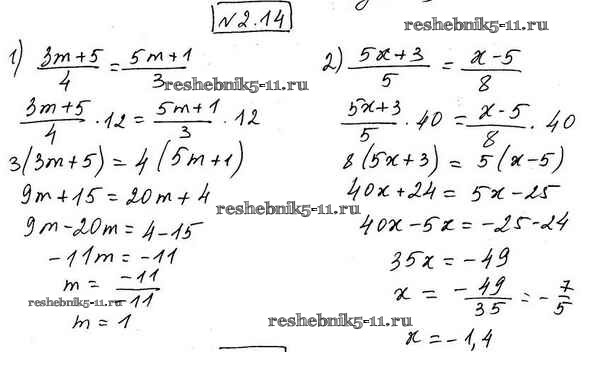 №2.14
reshebnik5-11.ru
1) (3m+5)/4 = (5m+1)/3
reshebnik5-11.ru
(3m+5)/4 · 12 = (5m+1)/3 · 12
3(3m+5) = 4(5m+1)
9m+15 = 20m+4
reshebnik5-11.ru
9m-20m = 4-15
-11m = -11
m = -11/-11
reshebnik5-11.ru
m = 1
2) (5x+3)/5 = (x-5)/8
(5x+3)/5 · 40 = (x-5)/8 · 40
8(5x+3) = 5(x-5)
40x+24 = 5x-25
40x-5x = -25-24
35x = -49
x = -49/35 = -7/5
reshebnik5-11.ru
x = -1,4